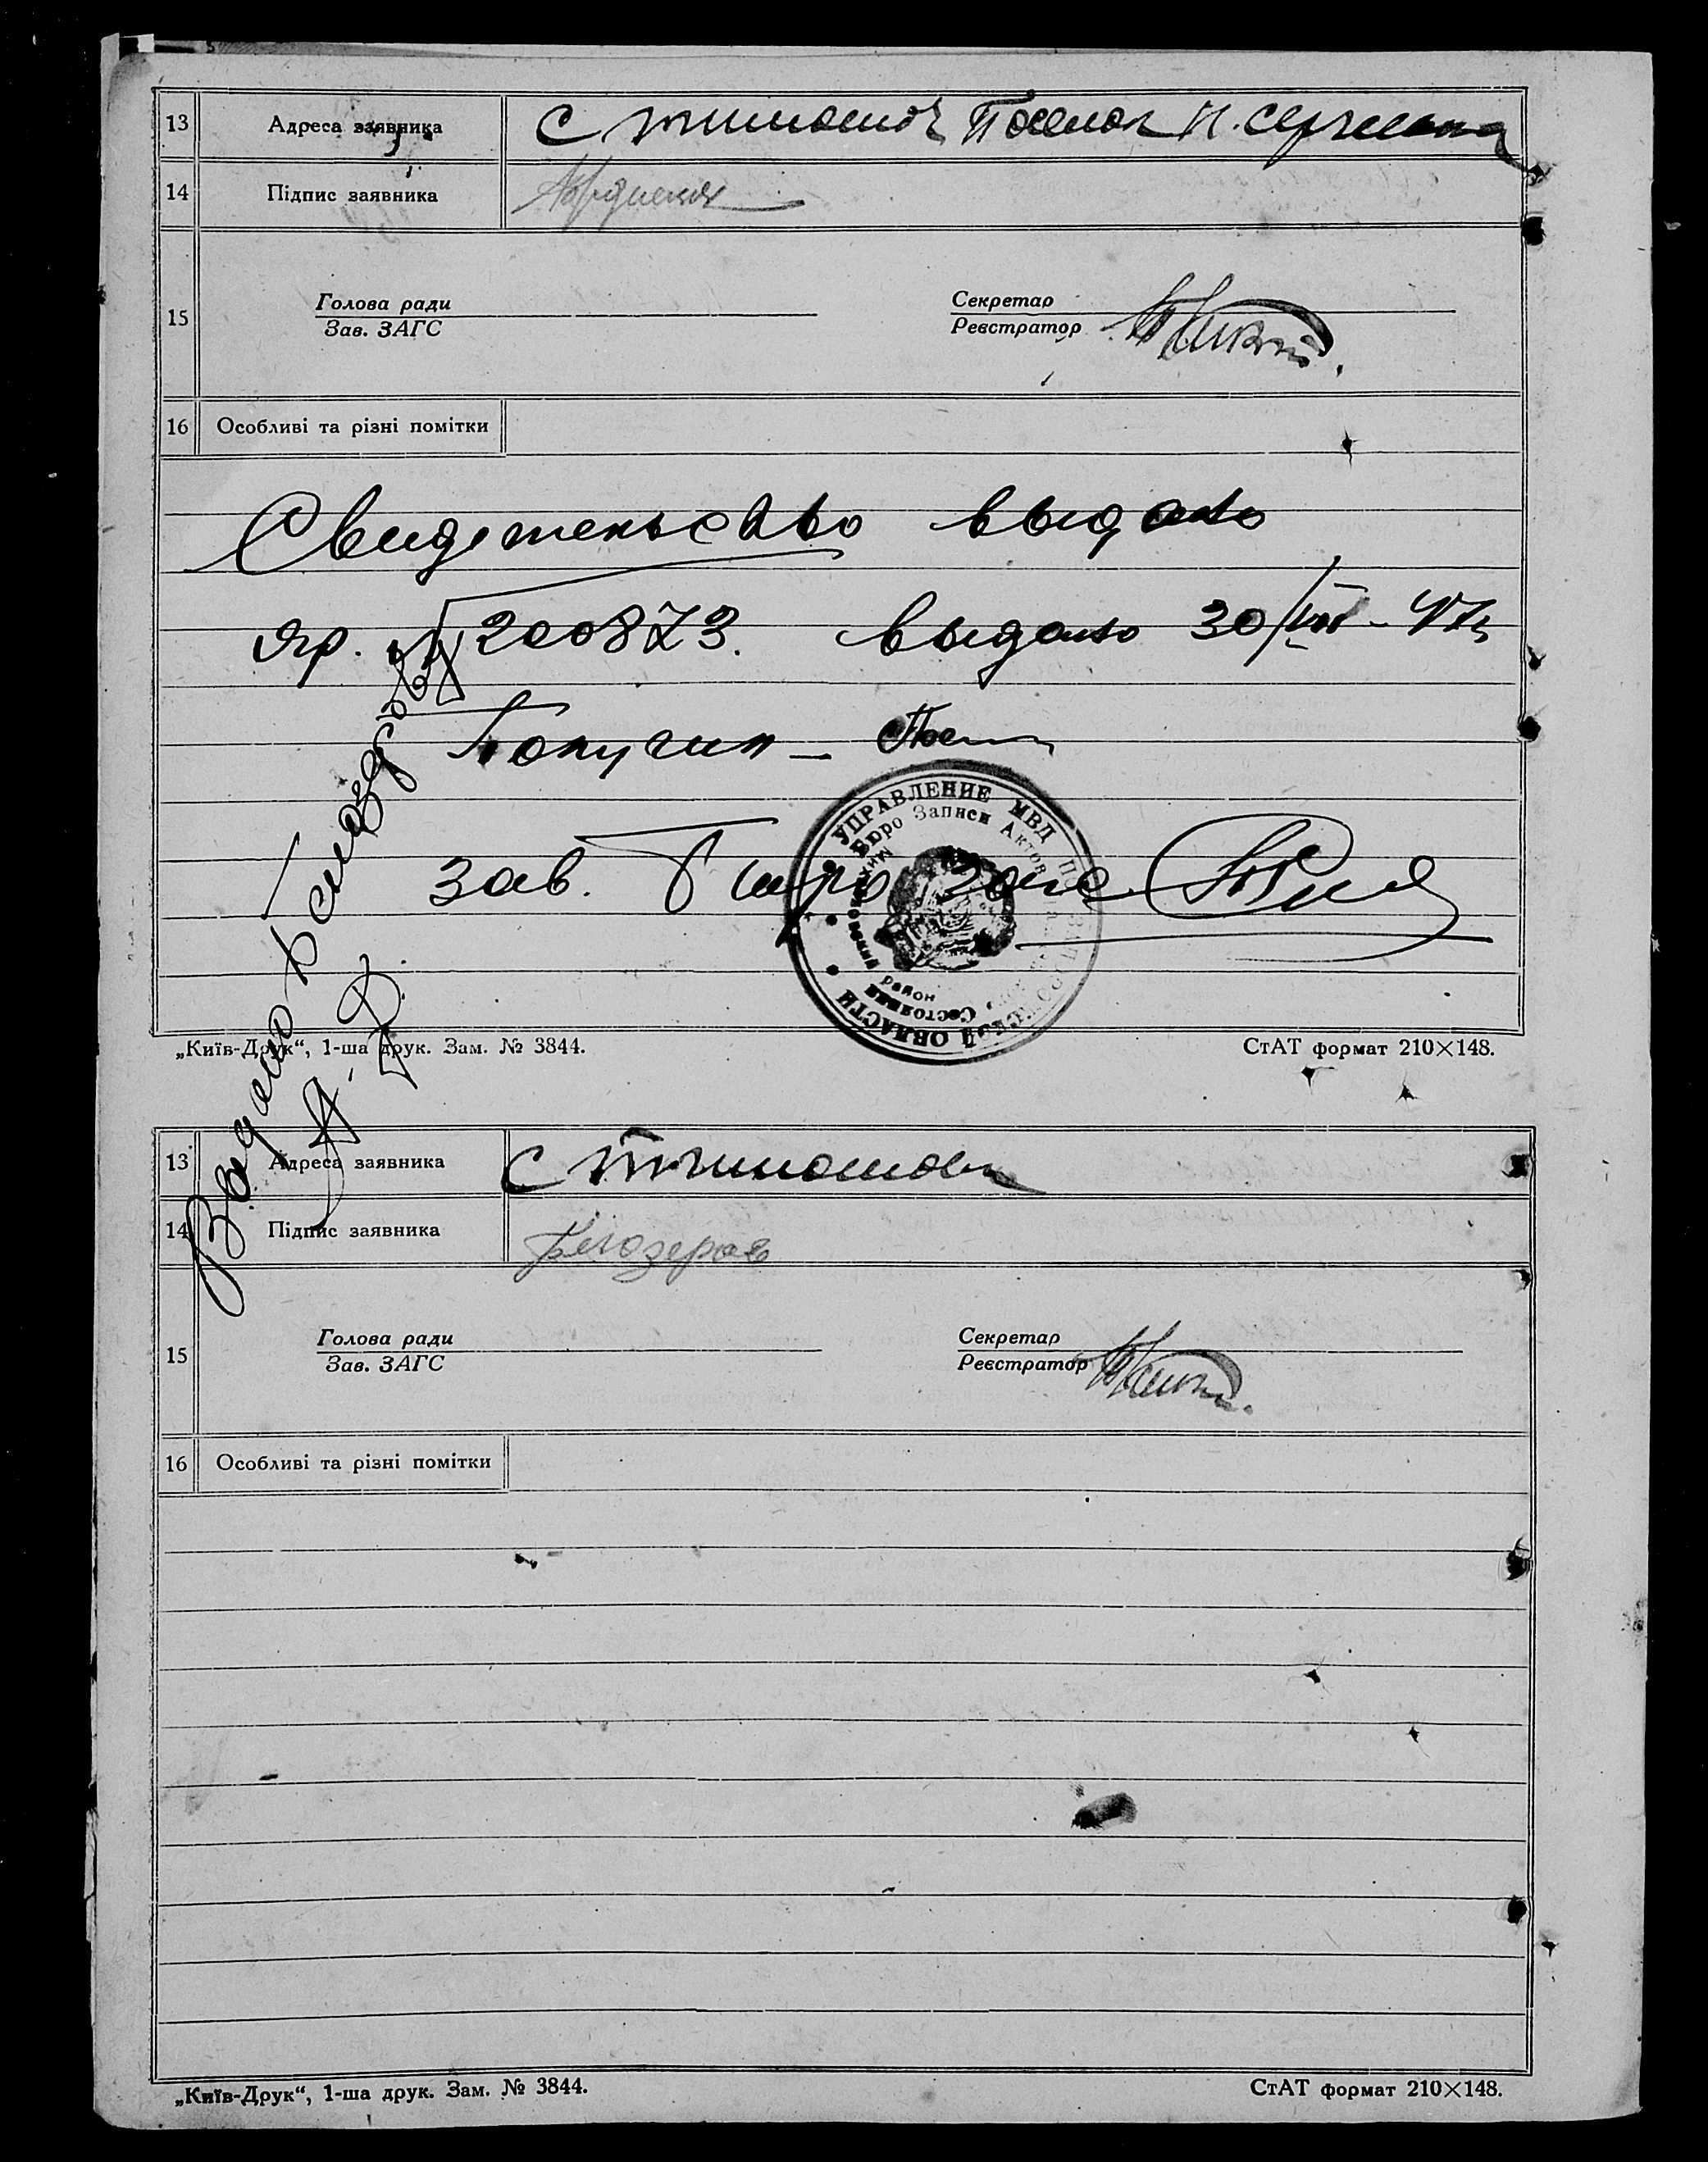 13 Адреса заявника С Тимошовка Поселок
14 Підпис заявника
15 Голова ради
Зав. ЗАГС
Секретар
Реєстратор
16 Особливі та різні помітки
Свидетельство выдано
яр. № 200873. выдано 30/VIII-47г
Получил —
зав. Бюро загс
УПРАВЛЕНИЕ МВД ПО ЗАПОРОЖСКОЙ ОБЛАСТИ
Бюро Записи Актов Состояния
район
Выдано Белозеровой
„Київ-Друк“, 1-ша друк. Зам. № 3844. СтАТ формат 210×148.
13 Адреса заявника С Тимошовка
14 Підпис заявника Белозеров
15 Голова ради
Зав. ЗАГС
Секретар
Реєстратор
16 Особливі та різні помітки
„Київ-Друк“, 1-ша друк. Зам. № 3844. СтАТ формат 210×148.